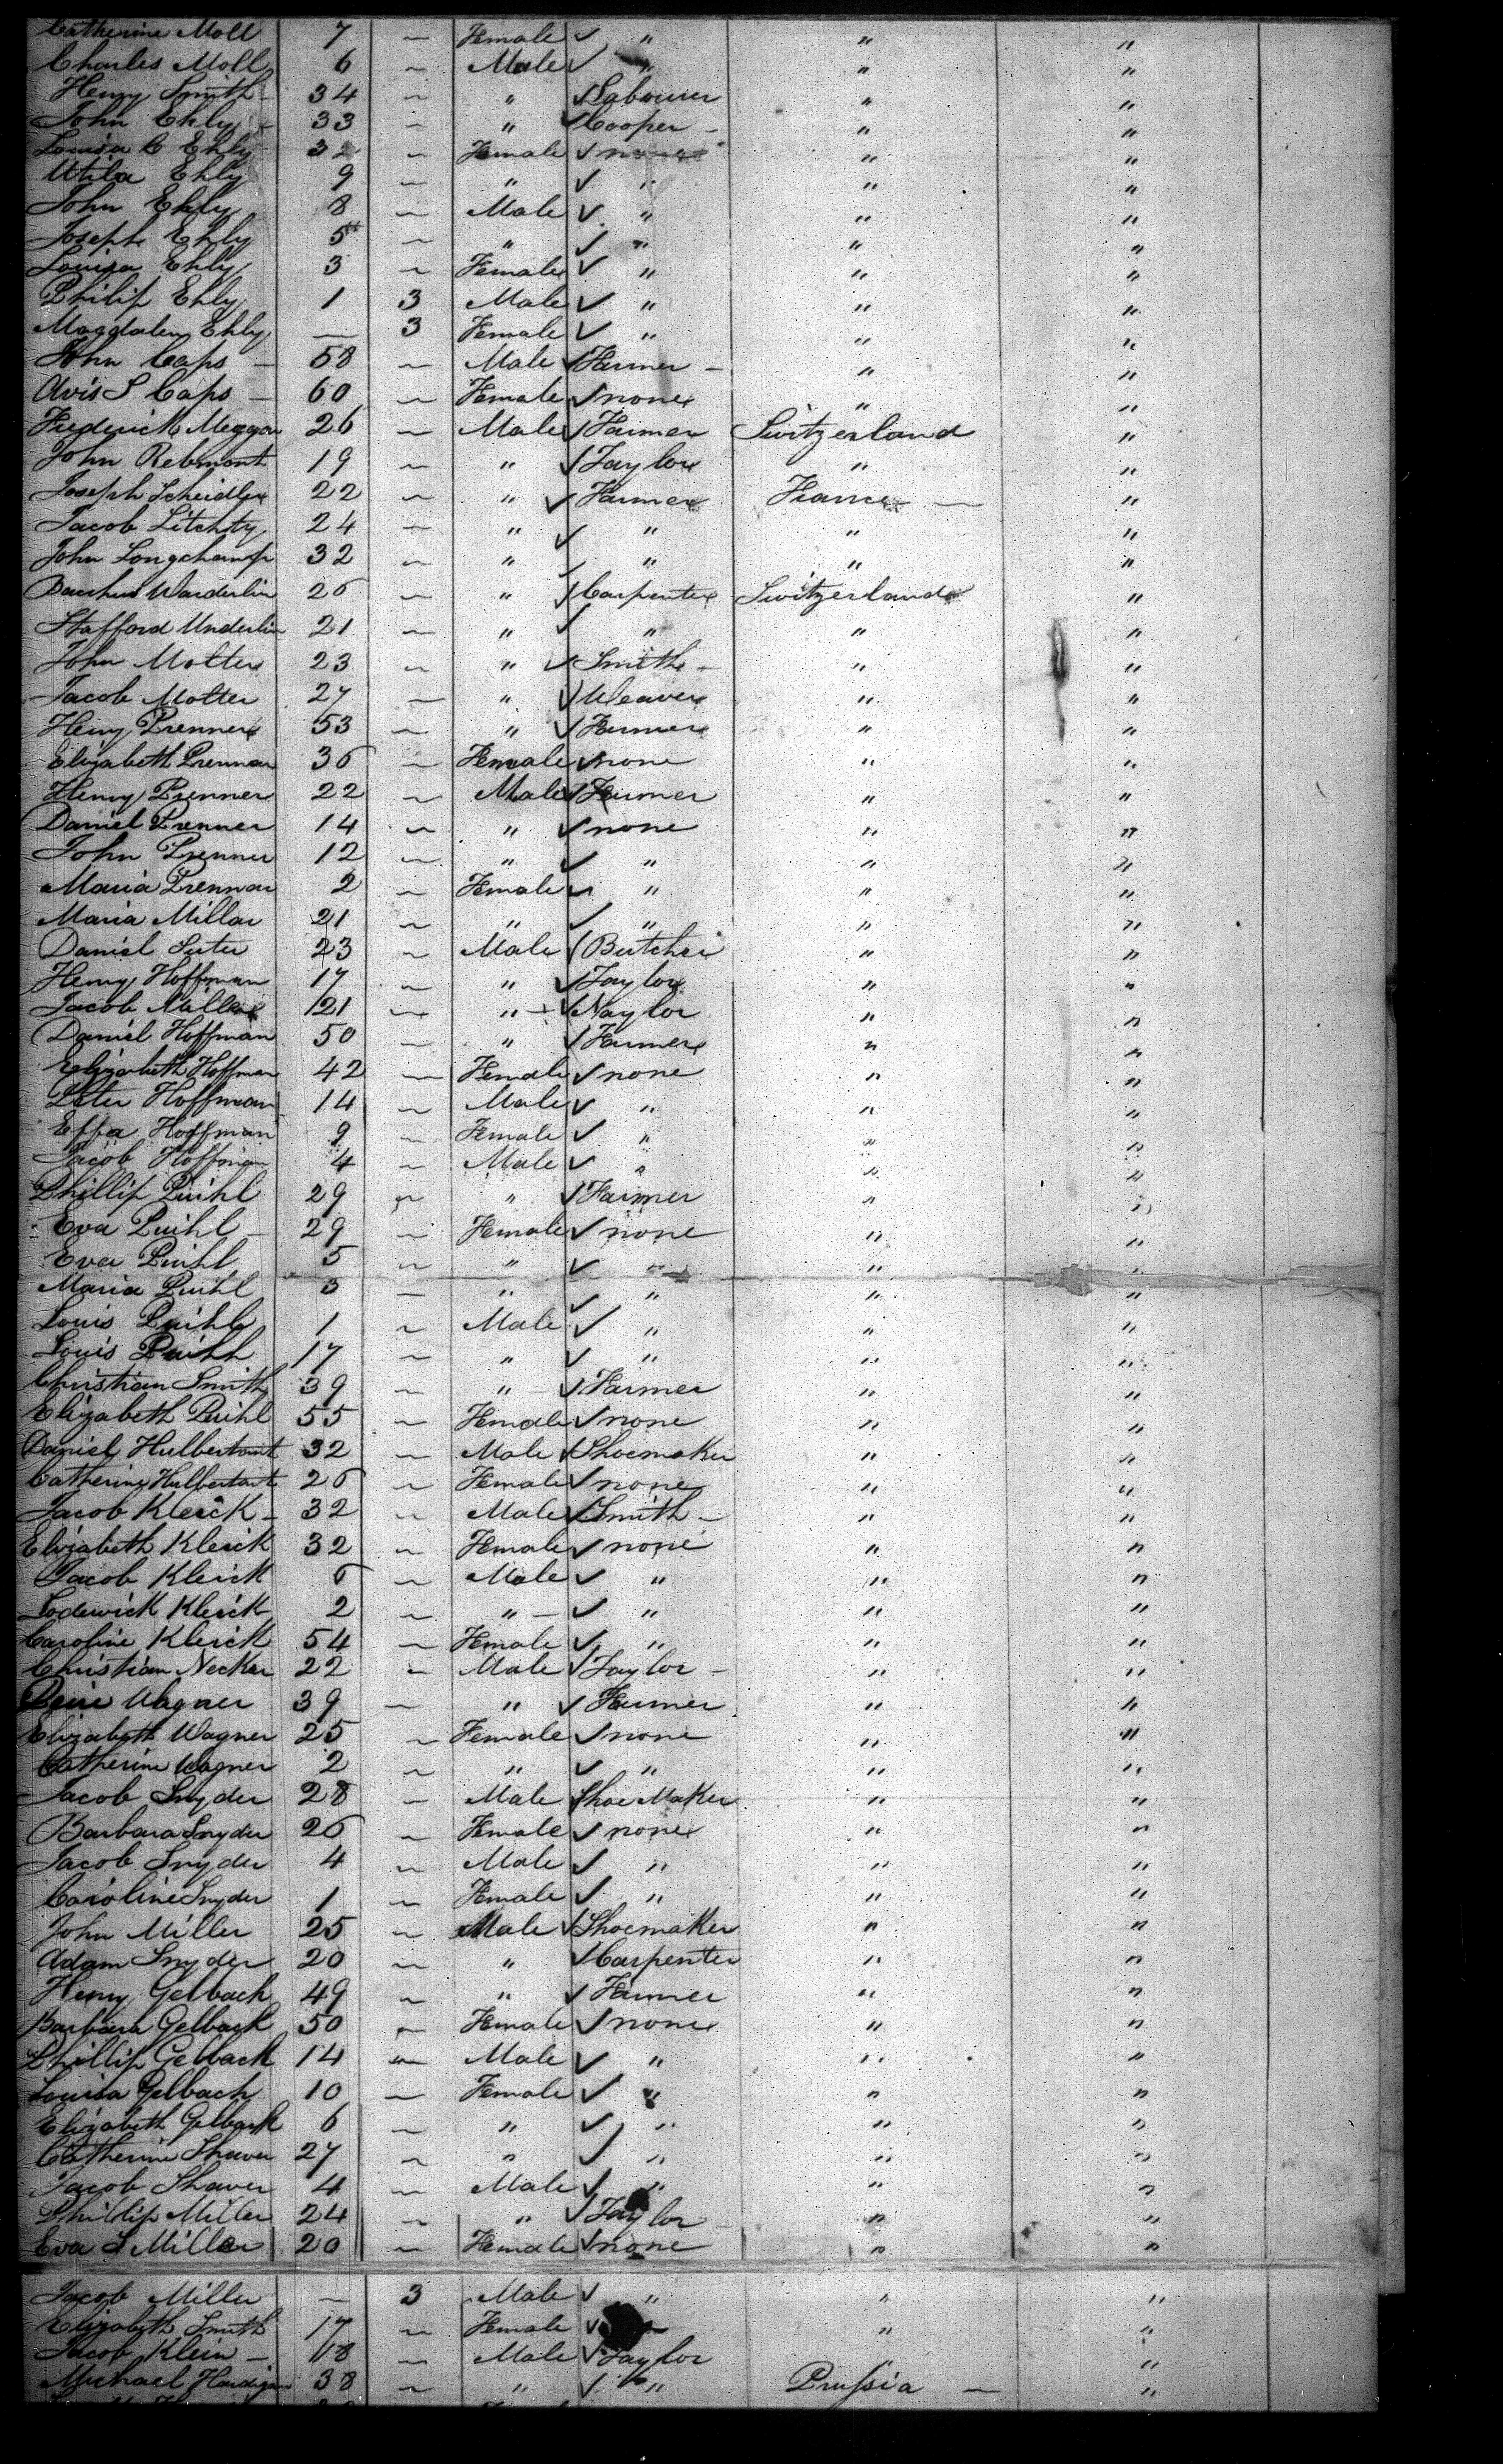 Catherine Moll 7 ~ Female ✓ " " "
Charles Moll 6 ~ Male ✓ " " "
Henry Smith 34 ~ " ✓ Labourer " "
John Ehly 33 ~ " ✓ Cooper " "
Louisa C Ehly 32 ~ Female ✓ none " "
Utila Ehly 9 ~ " ✓ " " "
John Ehly 8 ~ Male ✓ " " "
Joseph Ehly 5 ~ " ✓ " " "
Louisa Ehly 3 ~ Female ✓ " " "
Philip Ehly 1 3 Male ✓ " " "
Magdalen Ehly — 3 Female ✓ " " "
John Caps 58 ~ Male ✓ Farmer " "
Avis S Caps 60 ~ Female ✓ none " "
Frederick 26 ~ Male ✓ Farmer Switzerland "
John Rebmont 19 ~ " ✓ Taylor " "
Joseph Scheidler 22 ~ " ✓ Farmer France "
Jacob Litchty 24 ~ " ✓ " " "
John Longchamp 32 ~ " ✓ " " "
Warderlin 26 ~ " ✓ Carpenter Switzerland "
Stafford Underlin 21 ~ " ✓ " " "
John Motter 23 ~ " ✓ Smith " "
Jacob Motter 27 ~ " ✓ Weaver " "
Henry Prenner 53 ~ " ✓ Farmer " "
Elizabeth Prennar 36 ~ Female ✓ none " "
Henry Prenner 22 ~ Male ✓ Farmer " "
Daniel Prenner 14 ~ " ✓ none " "
John Prenner 12 ~ " ✓ " " "
Maria Prennar 2 ~ Female ✓ " " "
Maria Millar 21 ~ " ✓ " " "
Daniel Suter 23 ~ Male ✓ Butcher " "
Henry Hoffman 17 ~ " ✓ Taylor " "
Jacob 21 ~ " ✓ Naylor " "
Daniel Hoffman 50 ~ " ✓ Farmer " "
Elizabeth Hoffman 42 ~ Female ✓ none " "
Peter Hoffman 14 ~ Male ✓ " " "
Effa Hoffman 9 ~ Female ✓ " " "
Jacob Hoffman 4 ~ Male ✓ " " "
Phillip Puihl 29 ~ " ✓ Farmer " "
Eva Puihl 29 ~ Female ✓ none " "
Eva Puihl 5 ~ " ✓ " " "
Maria Puihl 3 ~ " ✓ " " "
Louis Puihl 1 ~ Male ✓ " " "
Louis Puihl 17 ~ " ✓ " " "
Christian Smith 39 ~ " ✓ Farmer " "
Elizabeth Puihl 55 ~ Female ✓ none " "
Daniel Hulbertant 32 ~ Male ✓ Shoemaker " "
Catherine Hulbertant 26 ~ Female ✓ none " "
Jacob Kleick 32 ~ Male ✓ Smith " "
Elizabeth Kleick 32 ~ Female ✓ none " "
Jacob Kleick 6 ~ Male ✓ " " "
Lodewick Kleick 2 ~ " ✓ " " "
Caroline Kleick 54 ~ Female ✓ " " "
Christian Necker 22 ~ Male ✓ Taylor " "
Wagner 39 ~ " ✓ Farmer " "
Elizabeth Wagner 25 ~ Female ✓ none " "
Catherine Wagner 2 ~ " ✓ " " "
Jacob Snyder 28 ~ Male Shoe Maker " "
Barbara Snyder 26 ~ Female ✓ none " "
Jacob Snyder 4 ~ Male ✓ " " "
Caroline Snyder 1 ~ Female ✓ " " "
John Miller 25 ~ Male ✓ Shoemaker " "
Adam Snyder 20 ~ " ✓ Carpenter " "
Henry Gelbach 49 ~ " ✓ Farmer " "
Barbara Gelbach 50 ~ Female ✓ none " "
Phillip Gelback 14 ~ Male ✓ " " "
Louisa Gelbach 10 ~ Female ✓ " " "
Elizabeth Gelback 6 ~ " ✓ " " "
Catherine Shaver 27 ~ " ✓ " " "
Jacob Shaver 4 ~ Male ✓ " " "
Phillip Miller 24 ~ " ✓ Taylor " "
Eva S Miller 20 ~ Female ✓ none " "
Jacob Miller — 3 Male ✓ " " "
Elizabeth Smith 17 ~ Female ✓ " "
Jacob Klein 18 ~ Male ✓ Taylor " "
Michael 38 ~ " ✓ " Prussia "